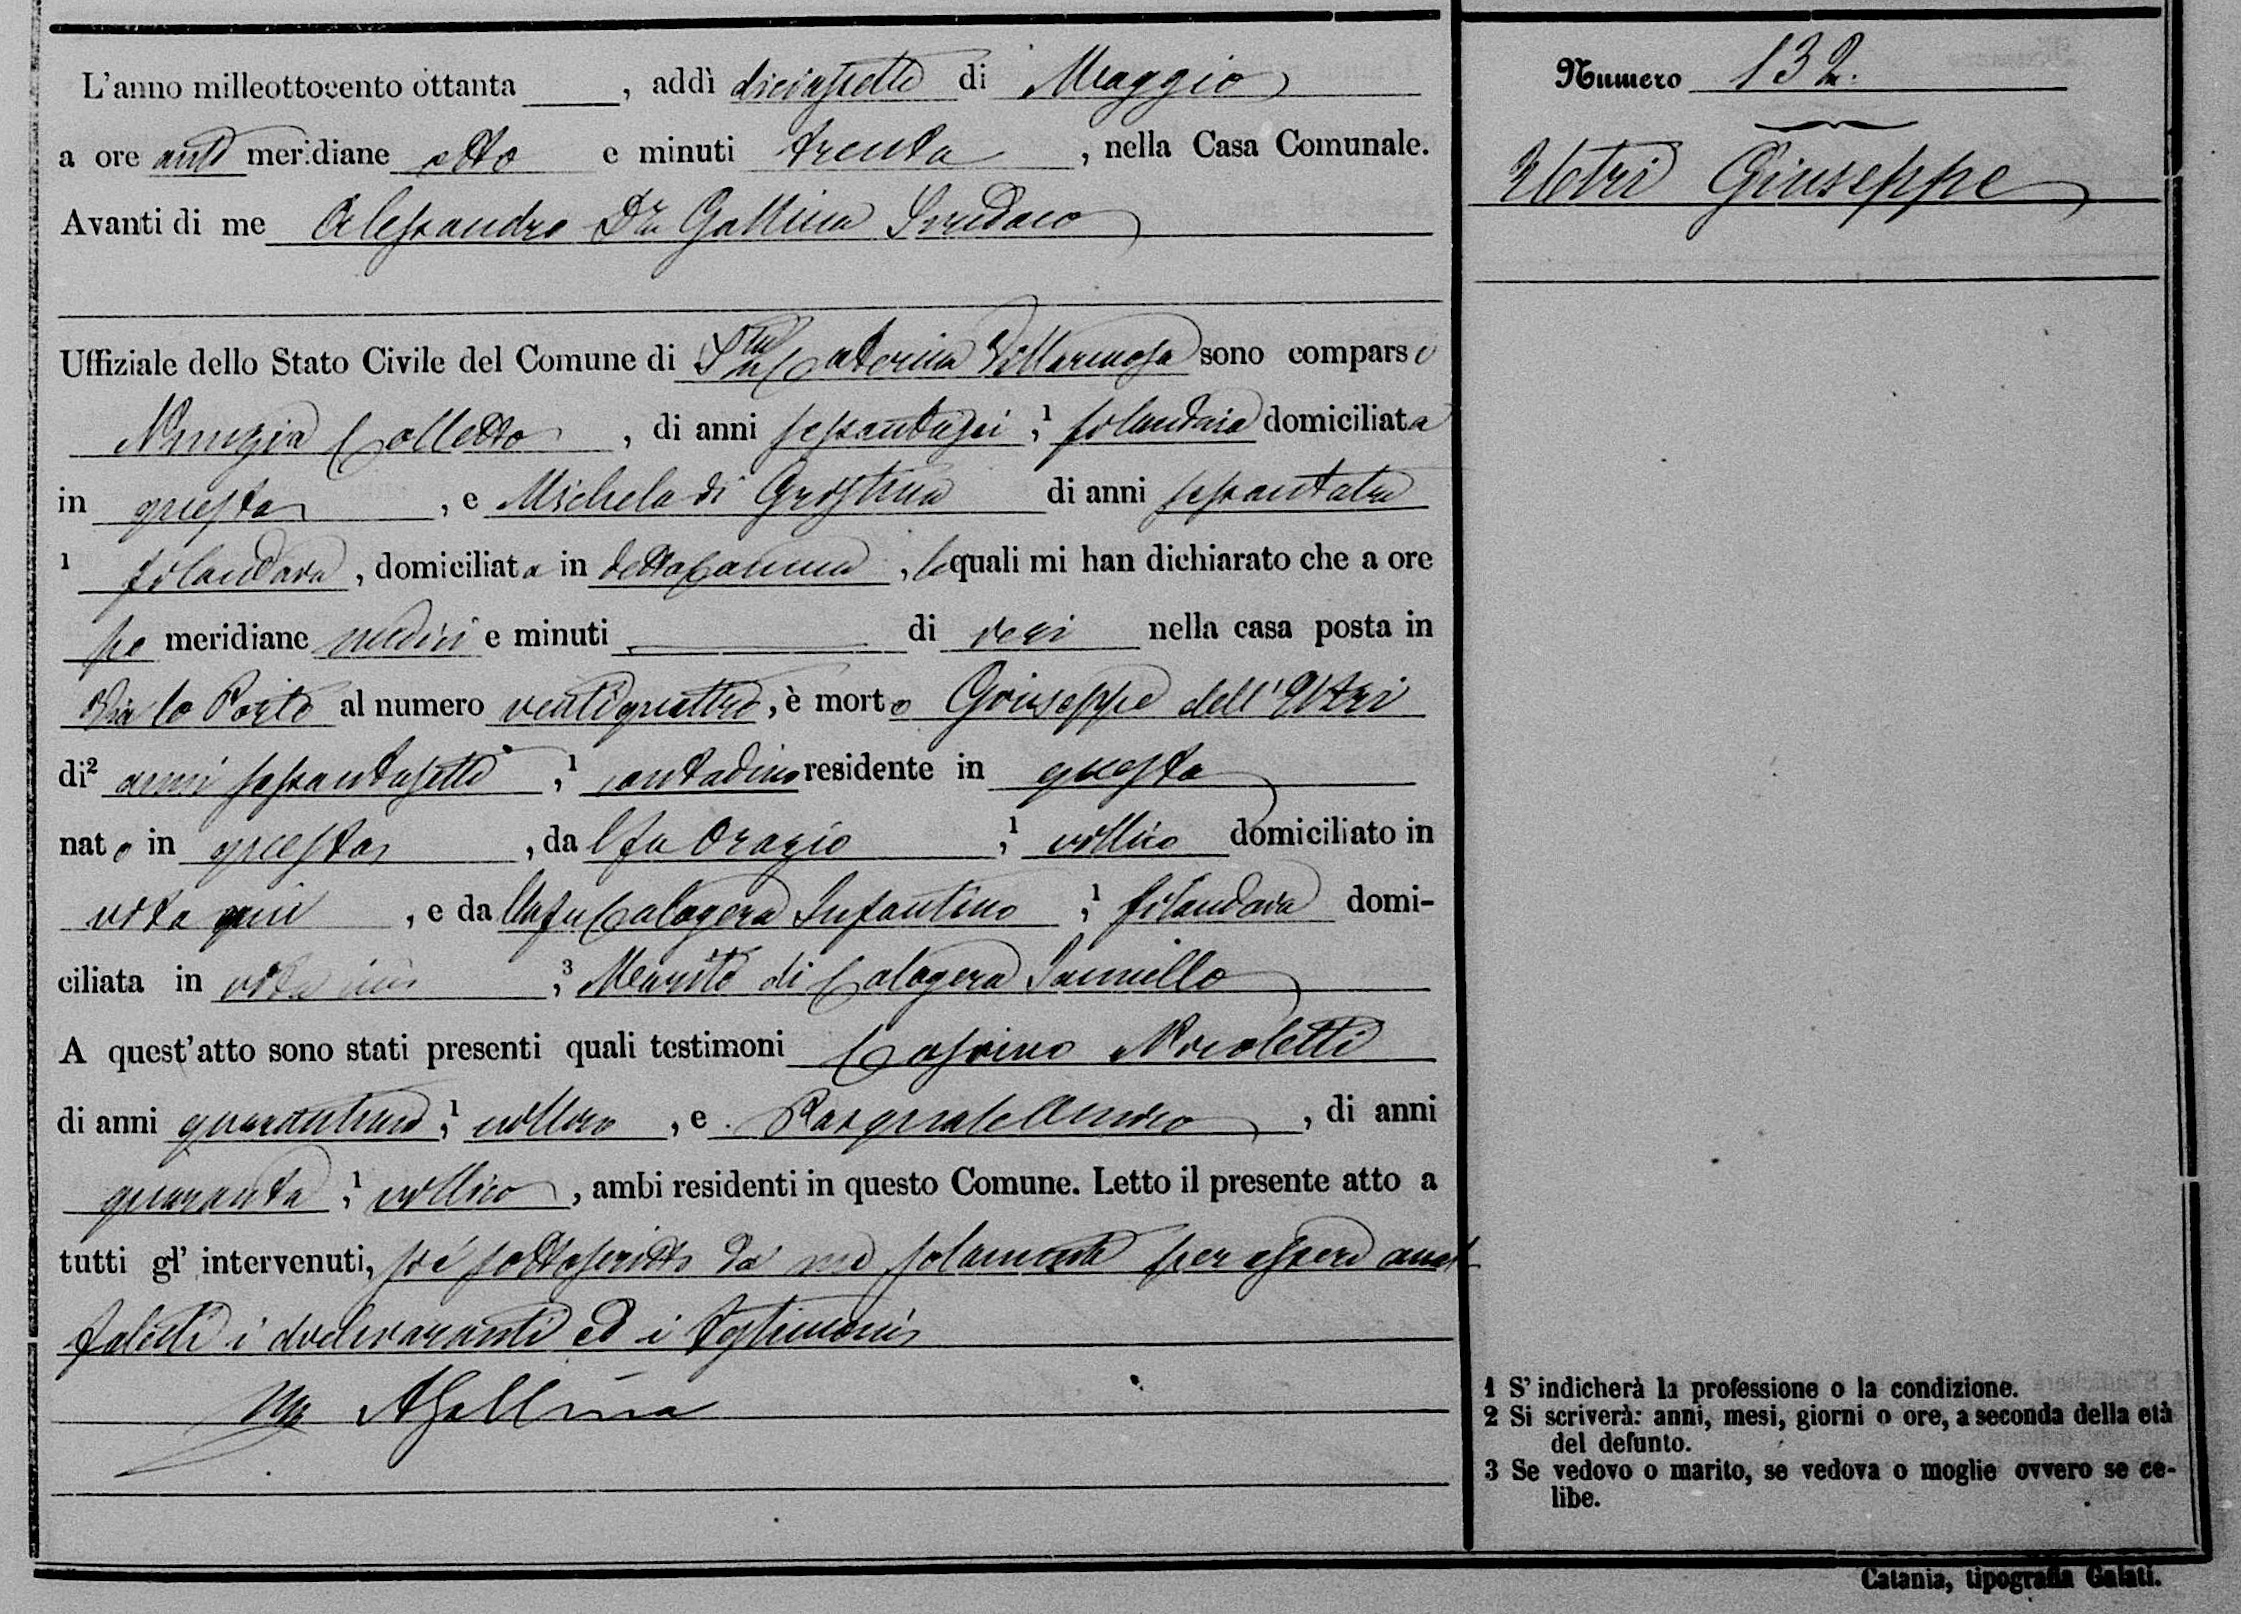 L'anno milleottocento ottanta ____, addì diciassette di Maggio
a ore anti meridiane otto e minuti trenta, nella Casa Comunale.
Avanti di me Alessandro Dr. Gallina Sindaco
Uffiziale dello Stato Civile del Comune di Sta Caterina Villarmosa sono comparse
Nunzia Colletto, di anni sessantasei,¹ filandaia domiciliata
in questa, e Michela di Gristina di anni sessantatre
¹ filandara, domiciliata in detta Comune, le quali mi han dichiarato che a ore
po meridiane undici e minuti ____ di ieri nella casa posta in
Via lo Porto al numero ventiquattro, è morto Giuseppe dell'Utri
di² anni sessantasette,¹ contadino residente in questa
nato in questa, da l fu Orazio,¹ villico domiciliato in
vita qui, e da lla fu Calogera Infantino,¹ filandara domi-
ciliata in vita ivi,³ Marito di Calogera Iannello
A quest'atto sono stati presenti quali testimoni Nicoletti
di anni quarantuno,¹ villico, e Pasquale Amico, di anni
quaranta,¹ villico, ambi residenti in questo Comune. Letto il presente atto a
tutti gl' intervenuti, si è sottoscritto da me solamente per essere anal
fabeti i dichiaranti ed i testimonii
AGallina
Numero 132.
Utri Giuseppe
1 S' indicherà la professione o la condizione.
2 Si scriverà: anni, mesi, giorni o ore, a seconda della età
del defunto.
3 Se vedovo o marito, se vedova o moglie ovvero se ce-
libe.
Catania, tipografia Galati.